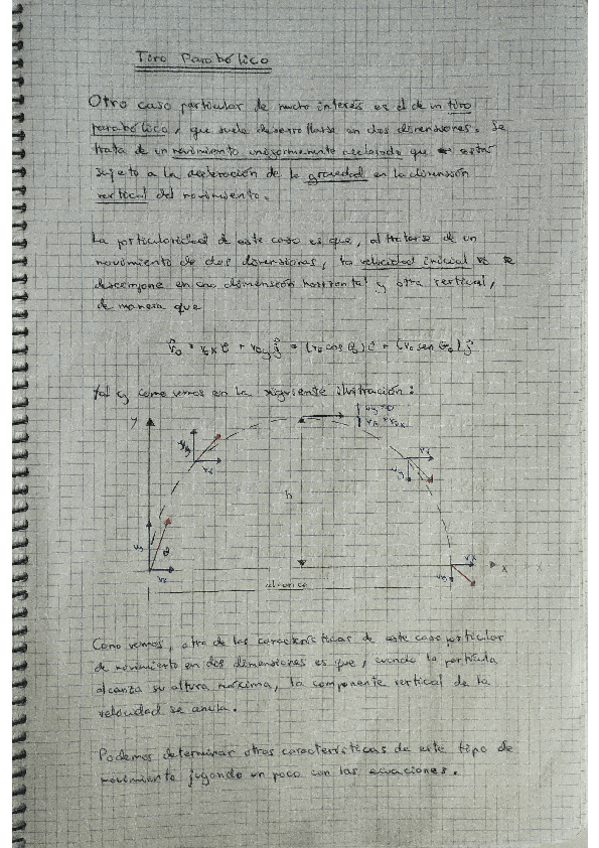 Tiro Parabólico
Otro caso particular de mucho interés es el de un tiro
parabólico, que suele desarrollarse en dos dimensiones. Se
trata de un movimiento uniformemente acelerado que está
sujeto a la aceleración de la gravedad en la dimensión
vertical del movimiento.
La particularidad de este caso es que, al tratarse de un
movimiento de dos dimensiones, la velocidad inicial se
descompone en una dimensión horizontal y otra vertical,
de manera que
v₀ = v₀x i + v₀y j = (v₀ cos θ₀) i + (v₀ sen θ₀) j
tal y como vemos en la siguiente ilustración:
y
vy = 0
vx = v₀x
vy
vx
vx
vy
h
vy
θ
vx
vx
vy
x
alcance
Como vemos, otra de las características de este caso particular
de movimiento en dos dimensiones es que, cuando la partícula
alcanza su altura máxima, la componente vertical de la
velocidad se anula.
Podemos determinar otras características de este tipo de
movimiento jugando un poco con las ecuaciones.